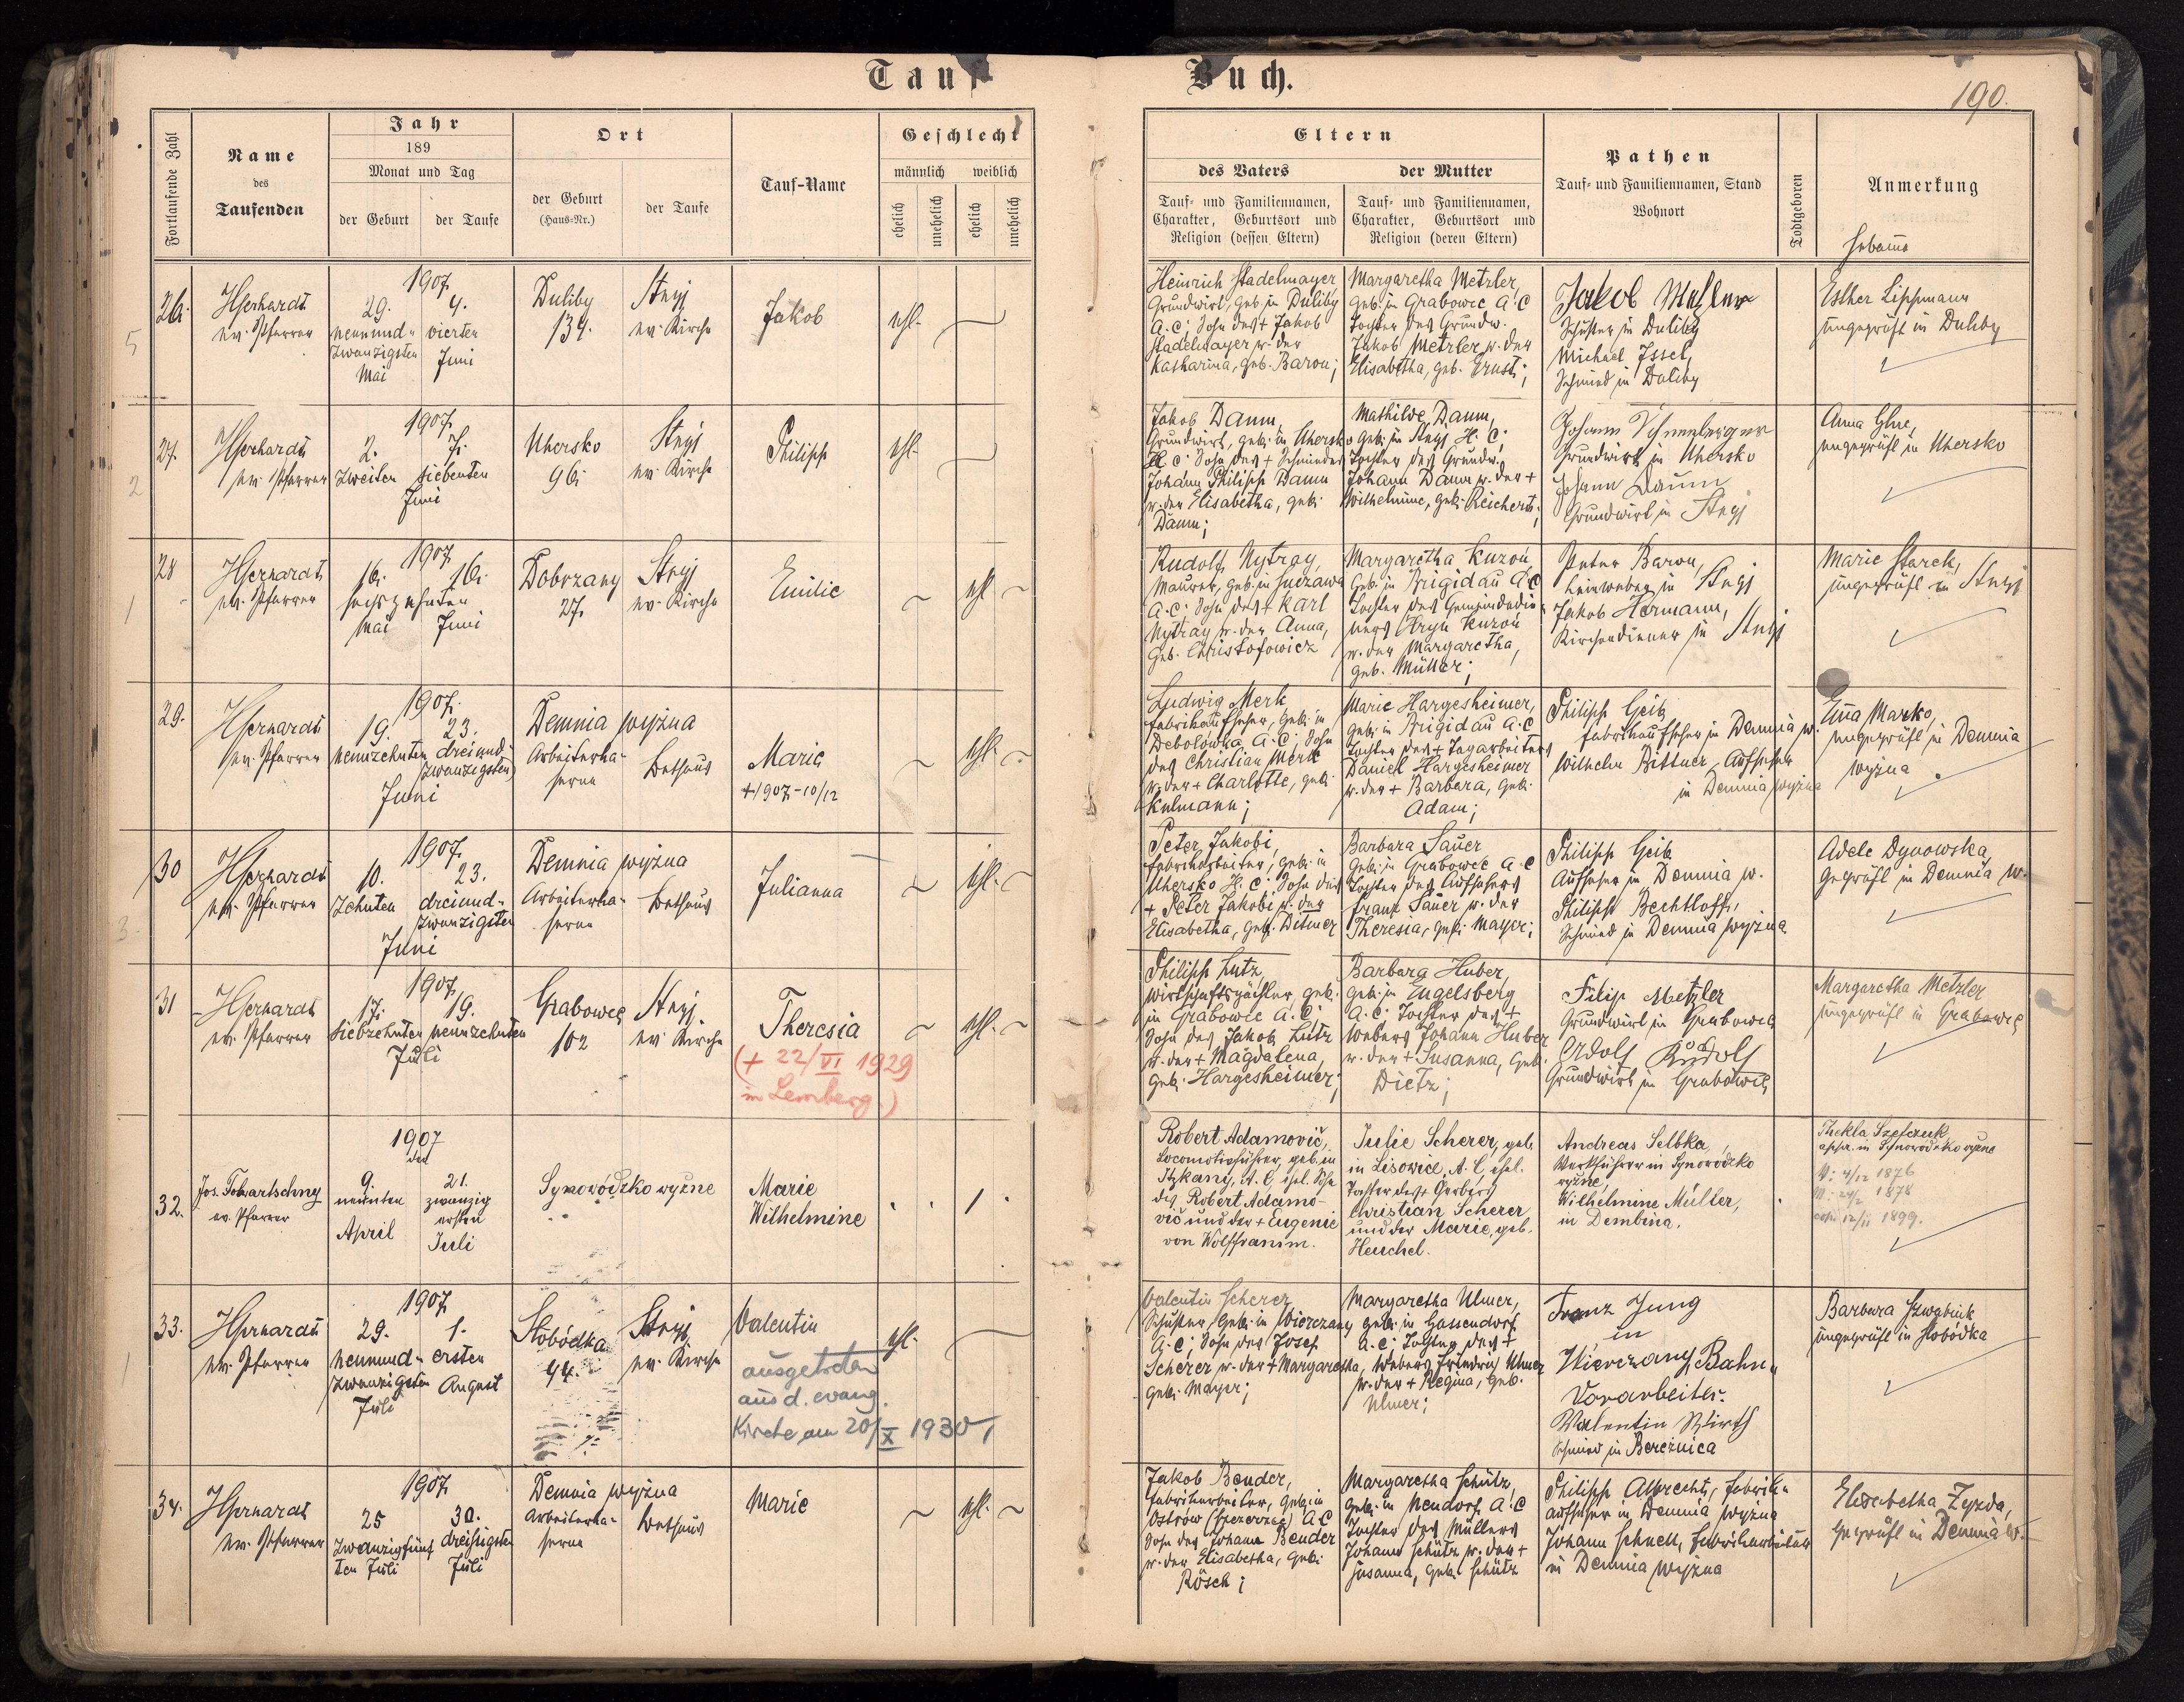 Tauf Buch.
190.
Fortlaufende Zahl
Name
des
Taufenden
Jahr
189
Monat und Tag
der Geburt
der Taufe
Ort
der Geburt
(Haus-Nr.)
der Taufe
Tauf-Name
Geschlecht
männlich
weiblich
ehelich
unehelich
ehelich
unehelich
Eltern
des Vaters
Tauf- und Familiennamen,
Charakter, Geburtsort und
Religion (dessen Eltern)
der Mutter
Tauf- und Familiennamen,
Charakter, Geburtsort und
Religion (deren Eltern)
Pathen
Tauf- und Familiennamen, Stand
Wohnort
Todtgeboren
Anmerkung
Hebamme
26.
ev. Pfarrer
1907
29.
neunund-
zwanzigsten
Mai
4.
vierten
Juni
Duliby
134.
Stryj
ev. Kirche
Jakob
ehl.
Heinrich Stadelmayer
Grundwirt, geb. in Duliby
A. C; Sohn des + Jakob
Stadelmayer u. der
Katharina, geb. Baron;
Margaretha Metzler,
geb. in Grabowce A. C
Tochter des Grundw.
Jakob Metzler u. der
Elisabetha, geb. Ernst;
Jakob Metzler
Schuster in Duliby
Michael Issel,
Schmied in Duliby
Esther Lippmann
ungeprüft in Duliby
27.
ev. Pfarrer
1907
2.
zweiten
7.
siebenten
Juni
Uhersko
96.
Stryj
ev. Kirche
Philipp
ehl.
Jakob Daum,
Grundwirt, geb. in Uhersko
H. C; Sohn des + Schmiedes
Johann Philipp Daum
u. der Elisabetha, geb.
Daum;
Mathilde Daum,
geb. in Stryj H. C;
Tochter des Grundw.
Johann Daum u. der +
Wilhelmine, geb. Reichert;
Johann
Grundwirt in Uhersko
Johann Daum
Grundwirt in Stryj
Anna
ungeprüft in Uhersko
28
ev. Pfarrer
1907
16.
16.
sechszehnten
Mai
Juni
Dobrzany
27.
Stryj
ev. Kirche
Emilie
ehl.
Rudolf Nytray,
Maurer, geb. in Suczawa
A. C; Sohn des + Karl
Nytray u. der Anna,
geb. Christofowicz
Margaretha Kuzoń
geb. in Brigidau A. C
Tochter des Gemeindedie-
ners Hryn Kuzoń
u. der Margaretha,
geb. Müller;
Peter Baron,
Leinweber in Stryj
Jakob Hermann,
Kirchendiener in Stryj
Marie Starck,
ungeprüft in Stryj
29.
ev. Pfarrer
1907.
19.
neunzehnten
23.
dreiund-
zwanzigsten
Juni
Demnia wyżna
Arbeiterka-
serne
Bethaus
Marie
+ 1907-10/12
ehl.
Ludwig Merk
Fabrikaufseher, geb. in
Debolówka, A. C. Sohn
des Christian Merk
u. der + Charlotte, geb.
Kulmann;
Marie Hargesheimer,
geb. in Brigidau A. C
Tochter des + Tagarbeiters
Daniel Hargesheimer
u. der + Barbara, geb.
Adam;
Philipp Geib
Fabrikaufseher in Demnia w.
Wilhelm Bittner, Aufseher
in Demnia wyżna
Marko,
ungeprüft in Demnia
wyżna
30
ev. Pfarrer
1907.
10.
zehnten
23.
dreiund-
zwanzigsten
Juni
Demnia wyżna
Arbeiterka-
serne
Bethaus
Julianna
ehl.
Peter Jakobi,
Fabrikarbeiter, geb. in
Uhersko H. C; Sohn des
+ Peter Jakobi u. der
Elisabetha, geb. Ditmer
Barbara Sauer
geb. in Grabowce A. C
Tochter des Aufsehers
Franz Sauer u. der
Theresia, geb. Mayer;
Philipp Geib
Aufseher in Demnia w.
Philipp Bechtloff,
Schmied in Demnia wyżna
Adele Dynowska
geprüft in Demnia w.
31
ev. Pfarrer
1907
17.
siebzehnten
19.
neunzehnten
Juli
Grabowce
102
Stryj
ev. Kirche
Theresia
(+ 22/VI 1929
in Lemberg.)
ehl.
Philipp Lutz,
Wirtschaftspächter, geb.
in Grabowce A. C;
Sohn des Jakob Lutz
u. der + Magdalena,
geb. Hargesheimer;
Barbara Huber,
geb. in Engelsberg
A. C; Tochter des +
Webers Johann Huber
u. der + Susanna, geb.
Dietz;
Filip Metzler
Grundwirt in Grabowce
Adolf Rudolf
Grundwirt in Grabowce
Margaretha Metzler
ungeprüft in Grabowce
32.
ev. Pfarrer
1907
den
9.
neunten
April
21.
zwanzig
ersten
Juli
Synowódzko wyżne
Marie
Wilhelmine
1
Robert Adamovič,
Locomotivführer, geb. in
Itzkany, A. C, ehel. Sohn
des Robert Adamo-
vič und der + Eugenie
von Wolfframm.
Julie Scherer, geb.
in Lisowice, A. C, ehel.
Tochter des + Gerbers
Christian Scherer
und der Marie, geb.
Heuchel.
Andreas Selbka,
Werkführer in Synowódzko
wyżne,
Wilhelmine Müller,
in Dembina.
Thekla Szefczuk
appr. in Synowódzko wyżne
V: 4/12 1876
M: 24/2 1878
cop. 12/11 1899.
33.
ev. Pfarrer
1907
29.
neunund-
zwanzigsten
Juli
1.
ersten
August
Słobódka
44.
Stryj
ev. Kirche
Valentin
ausgetreten
aus d. evang.
Kirche am 20/X 1930
ehl.
Valentin Scherer
Schuster, geb. in Wierczany
A. C; Sohn des Josef
Scherer u. der + Margaretha,
geb. Mayer;
Margaretha Ulmer,
geb. in Gassendorf
A. C; Tochter des +
Webers Friedrich Ulmer
u. der + Regina, geb.
Ulmer;
Franz Jung
in
Wierczany, Bahn-
Vorarbeiter.
Valentin Wirth
Schmied in Bereźnica
Barbara Szwabiuk
ungeprüft in Słobódka
34.
ev. Pfarrer
1907
25
zwanzigfünf
ten Juli
30.
dreißigsten
Juli
Demnia wyżna
Arbeiterka-
serne
Bethaus
Marie
ehl.
Jakob Bender,
Fabrikarbeiter, geb. in
Ostrów (Szczerzec) A. C
Sohn des Johann Bender
u. der Elisabetha, geb.
Rösch;
Margaretha Schütz
geb. in Neudorf A. C
Tochter des Müllers
Johann Schütz u. der +
Susanna, geb. Schütz
Philipp Albrecht, Fabriks-
aufseher in Demnia wyżna
Johann Schnell, Fabrikarbeiter
in Demnia wyżna
Elisabetha Zyzda,
geprüft in Demnia w.